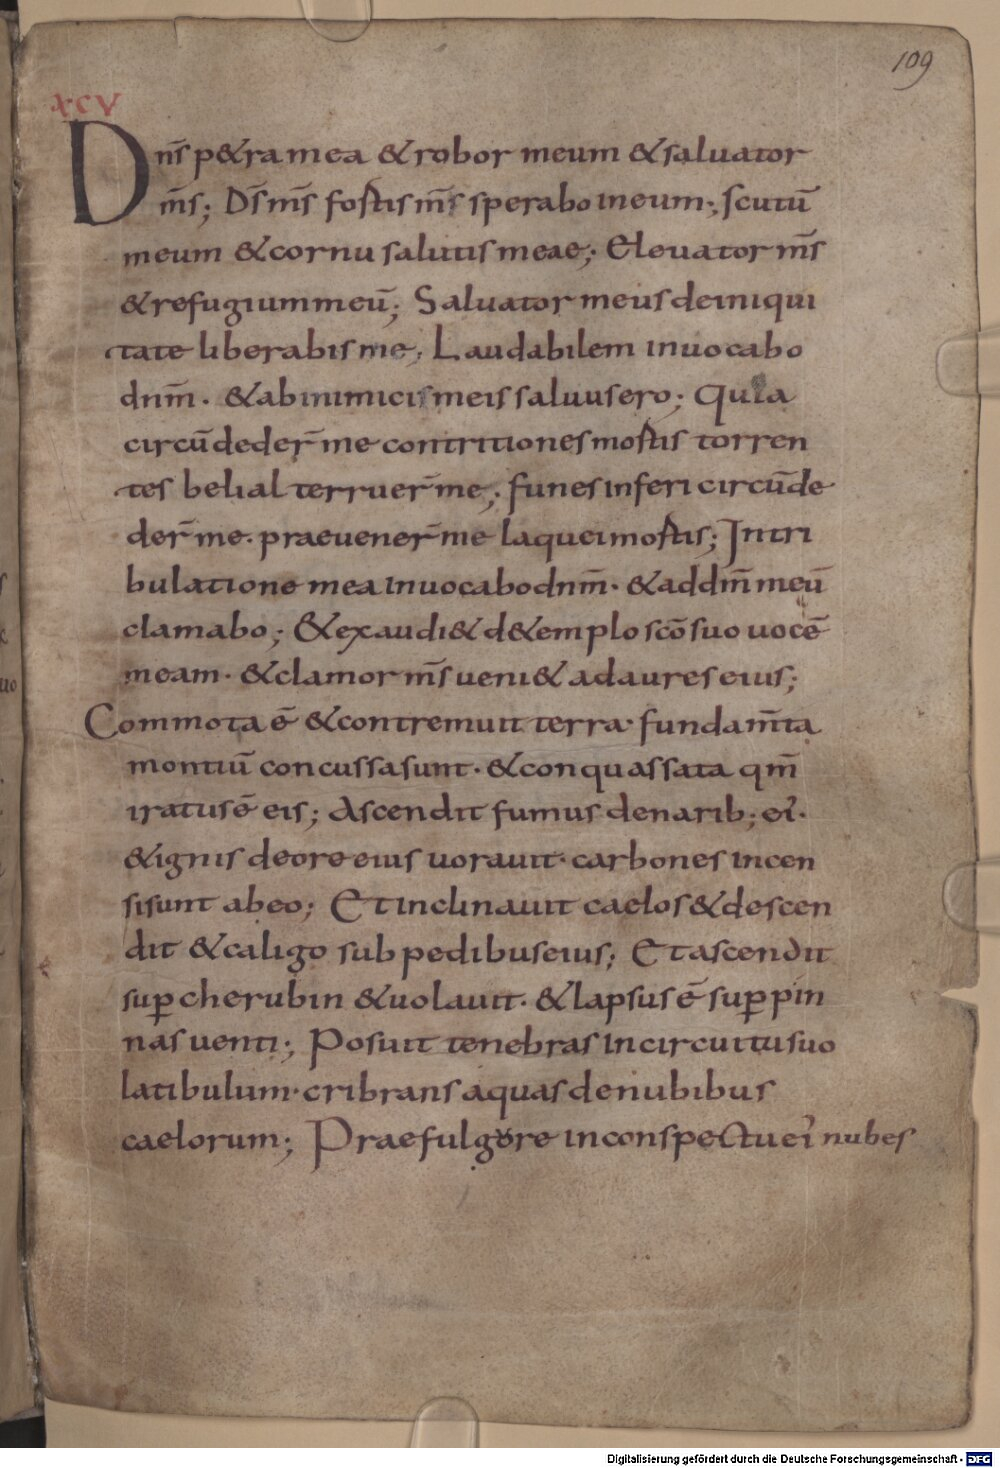 109
XCV
Dn̄s p&ra mea & robor meum & saluator
m̄s; D̄s m̄s fortis m̄s sperabo in eum; scutū
meum & cornu salutis meae; Eleuator m̄s
& refugium meū; Saluator meus de iniqui
tate liberabis me; Laudabilem inuocabo
dnm̄. & ab inimicis meis saluus ero; Quia
circūdeder̄ me contritiones mortis torren
tes belial terruer̄ me; funes inferi circūde
der̄ me. praeuener̄ me laquei mortis; In tri
bulatione mea inuocabo dnm̄. & ad dm̄ meū
clamabo; & exaudi& d& emplo scō suo uocē
meam. & clamor m̄s ueni& ad aures eius;
Commota ē & contremuit terra. fundam̄ta
montiū concussa sunt. & conquassata qm̄
iratus ē eis; Ascendit fumus de narib; ei.
& ignis de ore eius uorauit. carbones incen
si sunt ab eo; Et inclinauit caelos & descen
dit & caligo sub pedibus eius; Et ascendit
sup̱ cherubin & uolauit. & lapsus ē sup̱ pin
nas uenti; Posuit tenebras in circuitu suo
latibulum. cribrans aquas de nubibus
caelorum; Prae fulgore in conspectu ei nubes
Digitalisierung gefördert durch die Deutsche Forschungsgemeinschaft - DFG